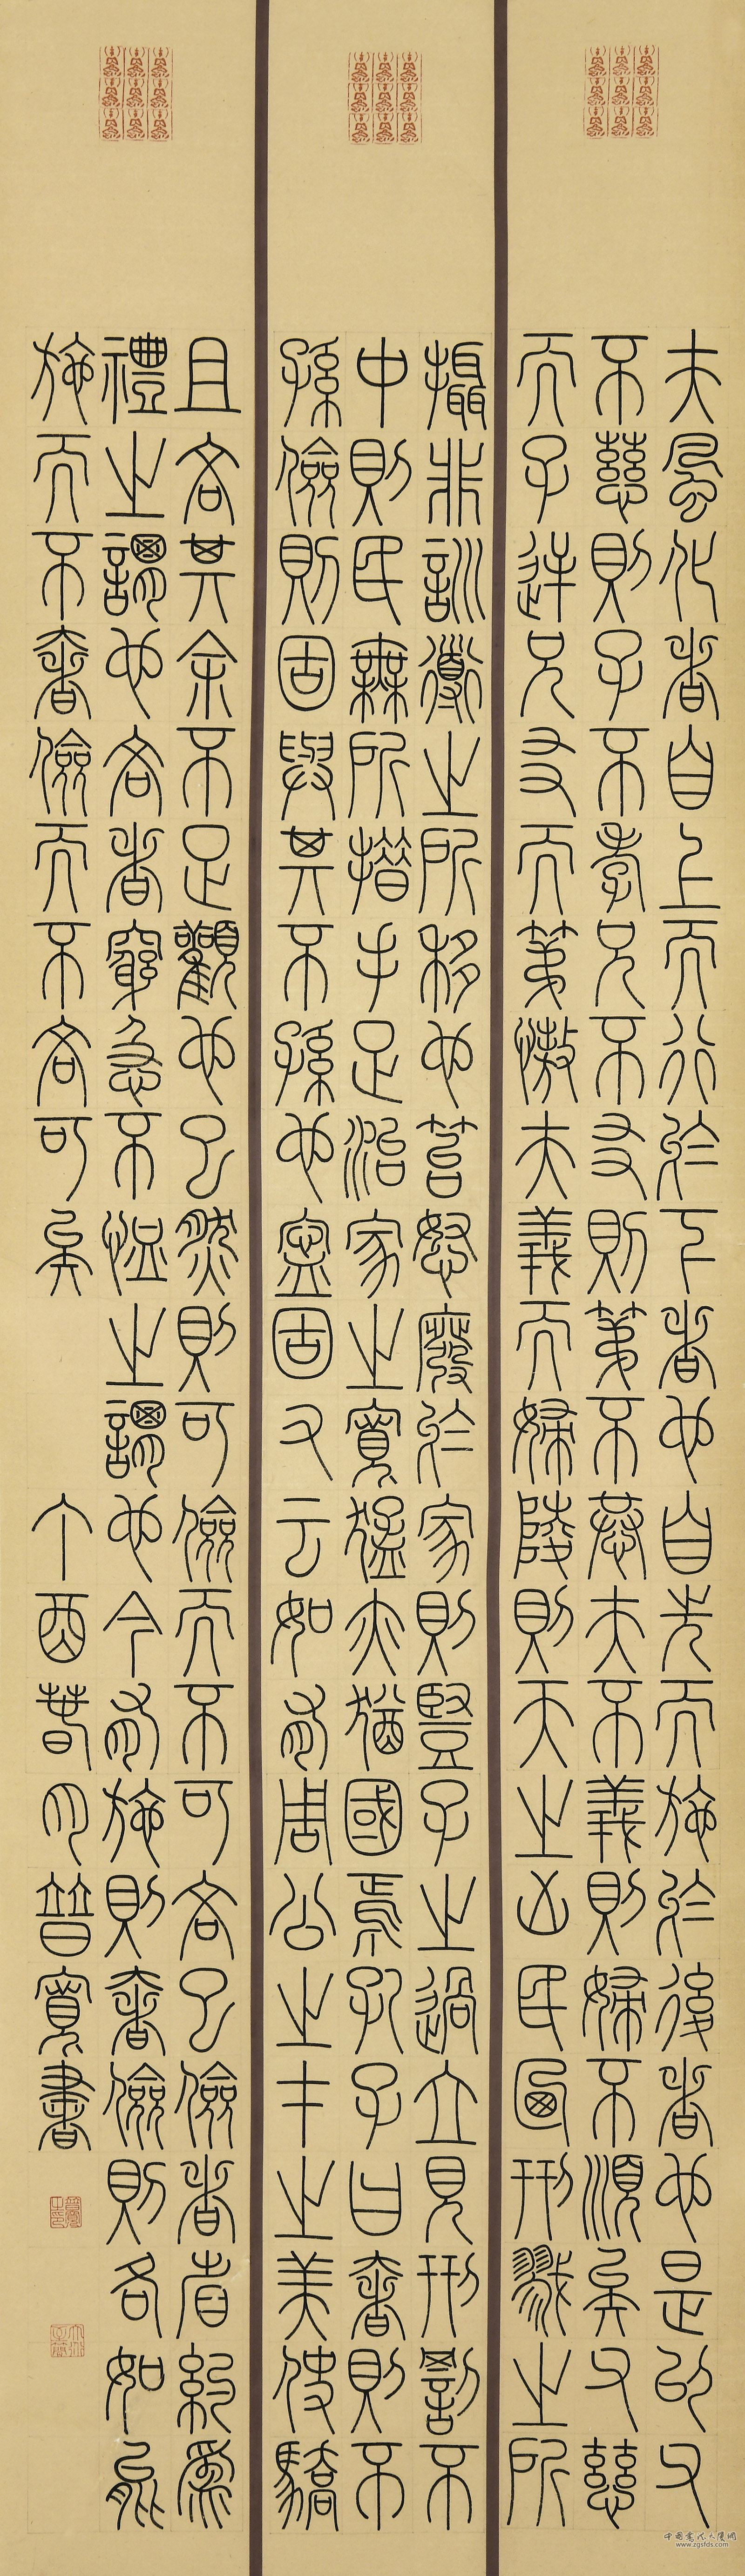 夫風化者自上而行於下者也自先而施於後者也是以父
不慈則子不孝兄不友則弟不恭夫不義則婦不順矣父慈
而子逆兄友而弟傲夫義而婦陵則天之凶民迺刑戮之所
攝非訓導之所移也笞怒廢於家則豎子之過立見刑罰不
中則民無所措手足治家之寬猛亦猶國焉孔子曰奢則不
孫儉則固與其不孫也寧固又云如有周公之才之美使驕
且吝其余不足觀也已然則可儉而不可吝已儉者省約為
禮之謂也吝者窮急不恤之謂也今有施則奢儉則各如能
施而不奢儉而不吝可矣 丁酉春月普寬書
中国书法大厦网
www.zgsfds.com